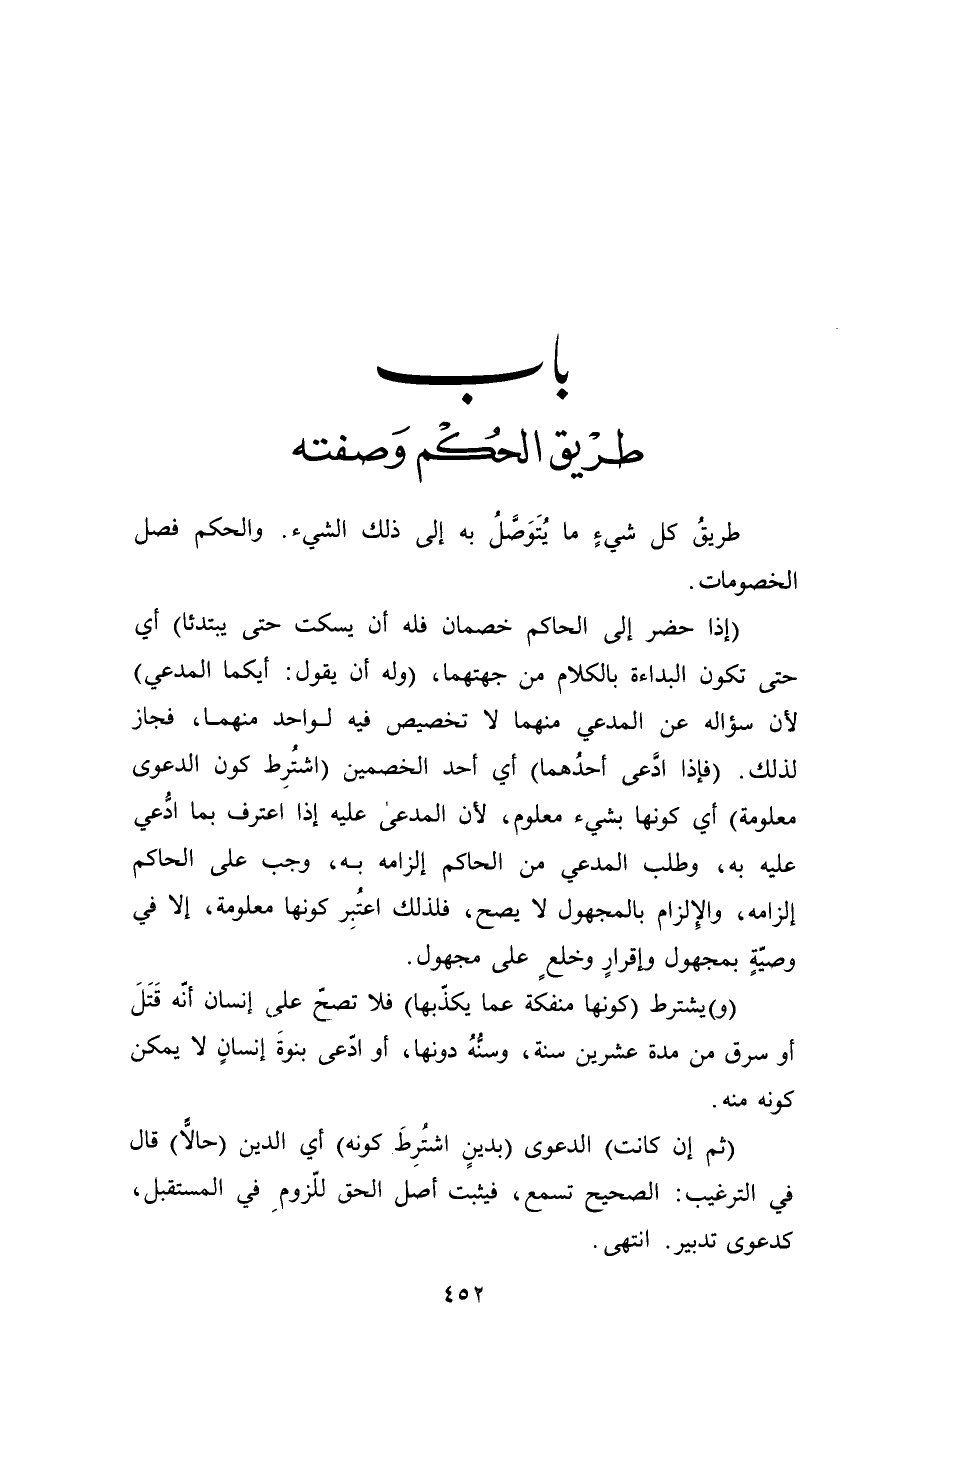 باب
طرِيق الحُكْم وَصفته
طريقُ كل شيءٍ ما يُتَوَصَّلُ به إلى ذلك الشيء. والحكم فصل
الخصومات.
(إذا حضر إلى الحاكم خصمان فله أن يسكت حتى يبتدئا) أي
حتى تكون البداءة بالكلام من جهتهما، (وله أن يقول: أيكما المدعي)
لأن سؤاله عن المدعي منهما لا تخصيص فيه لواحد منهما، فجاز
لذلك. (فإذا ادَّعى أحدُهما) أي أحد الخصمين (اشتُرِط كون الدعوى
معلومة) أي كونها بشيء معلوم، لأن المدعىٰ عليه إذا اعترف بما ادُّعي
عليه به، وطلب المدعي من الحاكم إلزامه به، وجب على الحاكم
إلزامه، والإِلزام بالمجهول لا يصح، فلذلك اعتُبِر كونها معلومة، إلا في
وصيّةٍ بمجهول وإقرارٍ وخلعٍ على مجهول.
(و) يشترط (كونها منفكة عما يكذّبها) فلا تصحّ على إنسان أنّه قَتَلَ
أو سرق من مدة عشرين سنة، وسنُّهُ دونها، أو ادّعى بنوةَ إنسانٍ لا يمكن
كونه منه.
(ثم إن كانت) الدعوى (بدينٍ اشتُرِطَ كونه) أي الدين (حالاًّ) قال
في الترغيب: الصحيح تسمع، فيثبت أصل الحق للّزومِ في المستقبل،
كدعوى تدبير. انتهى.
٤٥٢